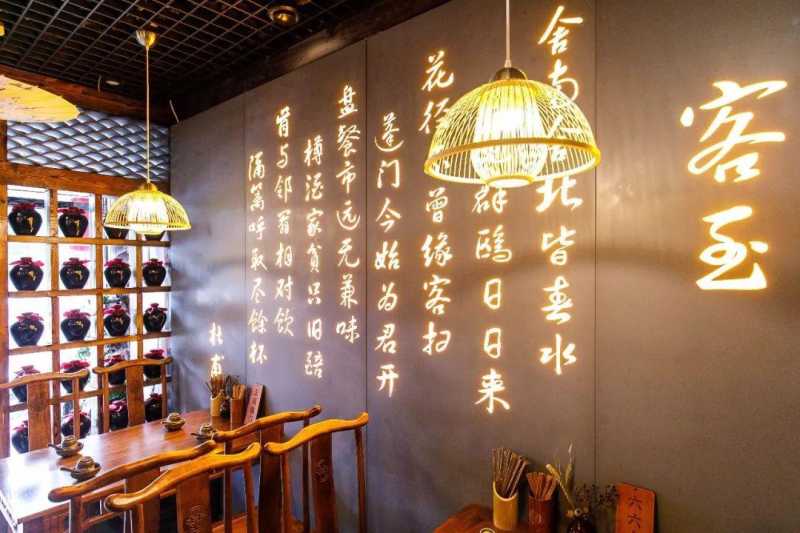 客至
舍南舍北皆春水
群鸥日日来
花径曾缘客扫
蓬门今始为君开
盘餐市远无兼味
樽酒家贫只旧醅
肯与邻翁相对饮
隔篱呼取尽餘杯
杜甫
六六